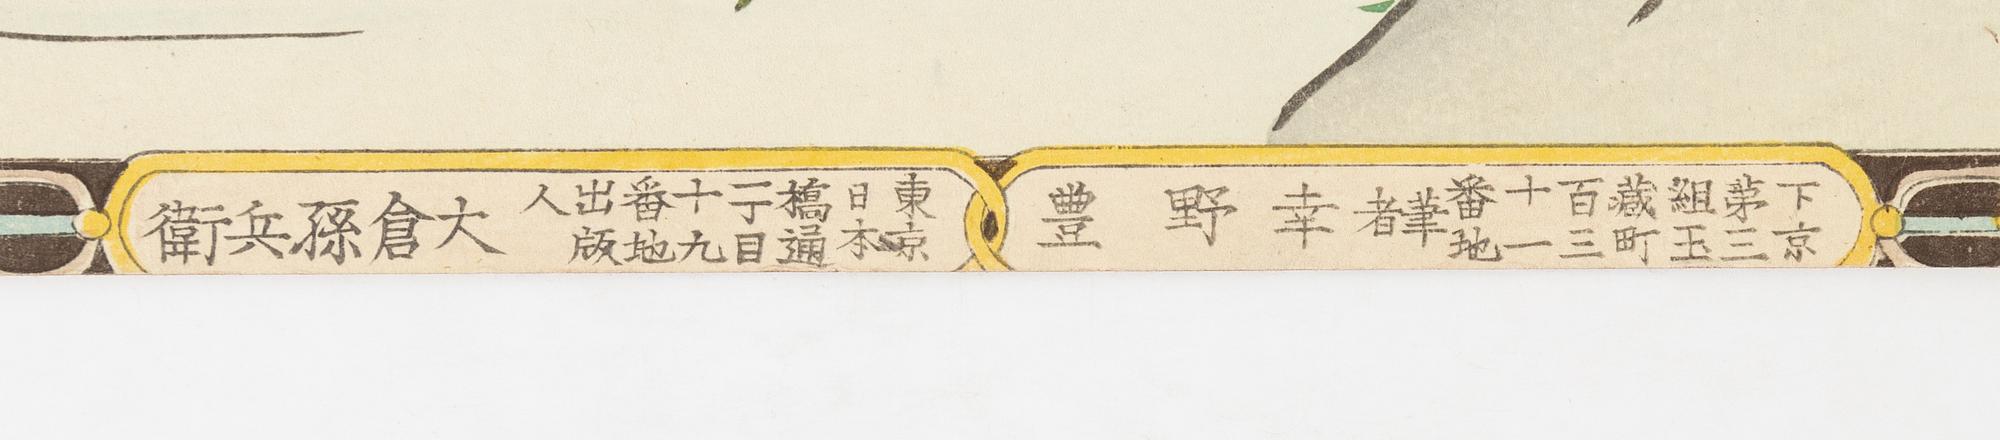 下京第三組玉蔵町百三十一番地筆者 幸野豊
東京日本橋通一丁目十九番地出版人 大倉孫兵衛